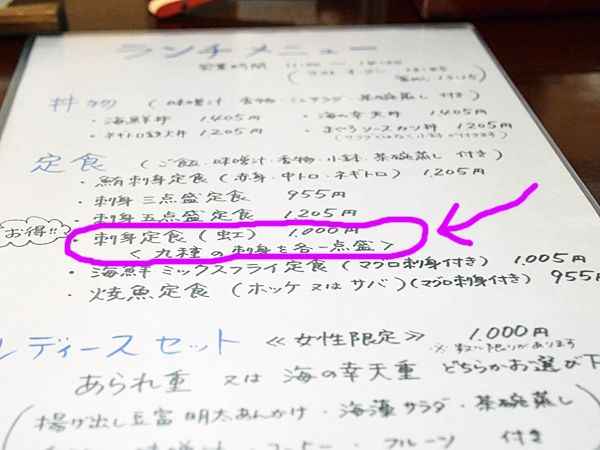 ランチメニュー
営業時間 11:00 〜
ラストオーダー
丼物 (味噌汁・香物・ミニサラダ・茶碗蒸し 付き)
・海鮮丼 1.405円 ・海の幸天丼 1.405円
・ネギトロ鉄火丼 1.205円 ・まぐろソースカツ丼 1.205円
定食 (ご飯・味噌汁・香物・小鉢・茶碗蒸し 付き)
・鮪刺身定食 (赤身・中トロ・ネギトロ) 1.205円
・刺身三点盛定食 955円
・刺身五点盛定食 1.205円
お得!!
・刺身定食 (虹) 1.000円
<九種の刺身を各一点盛>
・海鮮ミックスフライ定食 (マグロ刺身付き) 1.005円
・焼魚定食 (ホッケ又はサバ)(マグロ刺身付き) 955円
レディースセット ≪女性限定≫ 1.000円
※数に限りがあります
あられ重 又は 海の幸天重 どちらかお選び下
(揚げ出し豆富 明太あんかけ・海藻サラダ・茶碗蒸し
味噌汁・コーヒー・フルーツ 付き